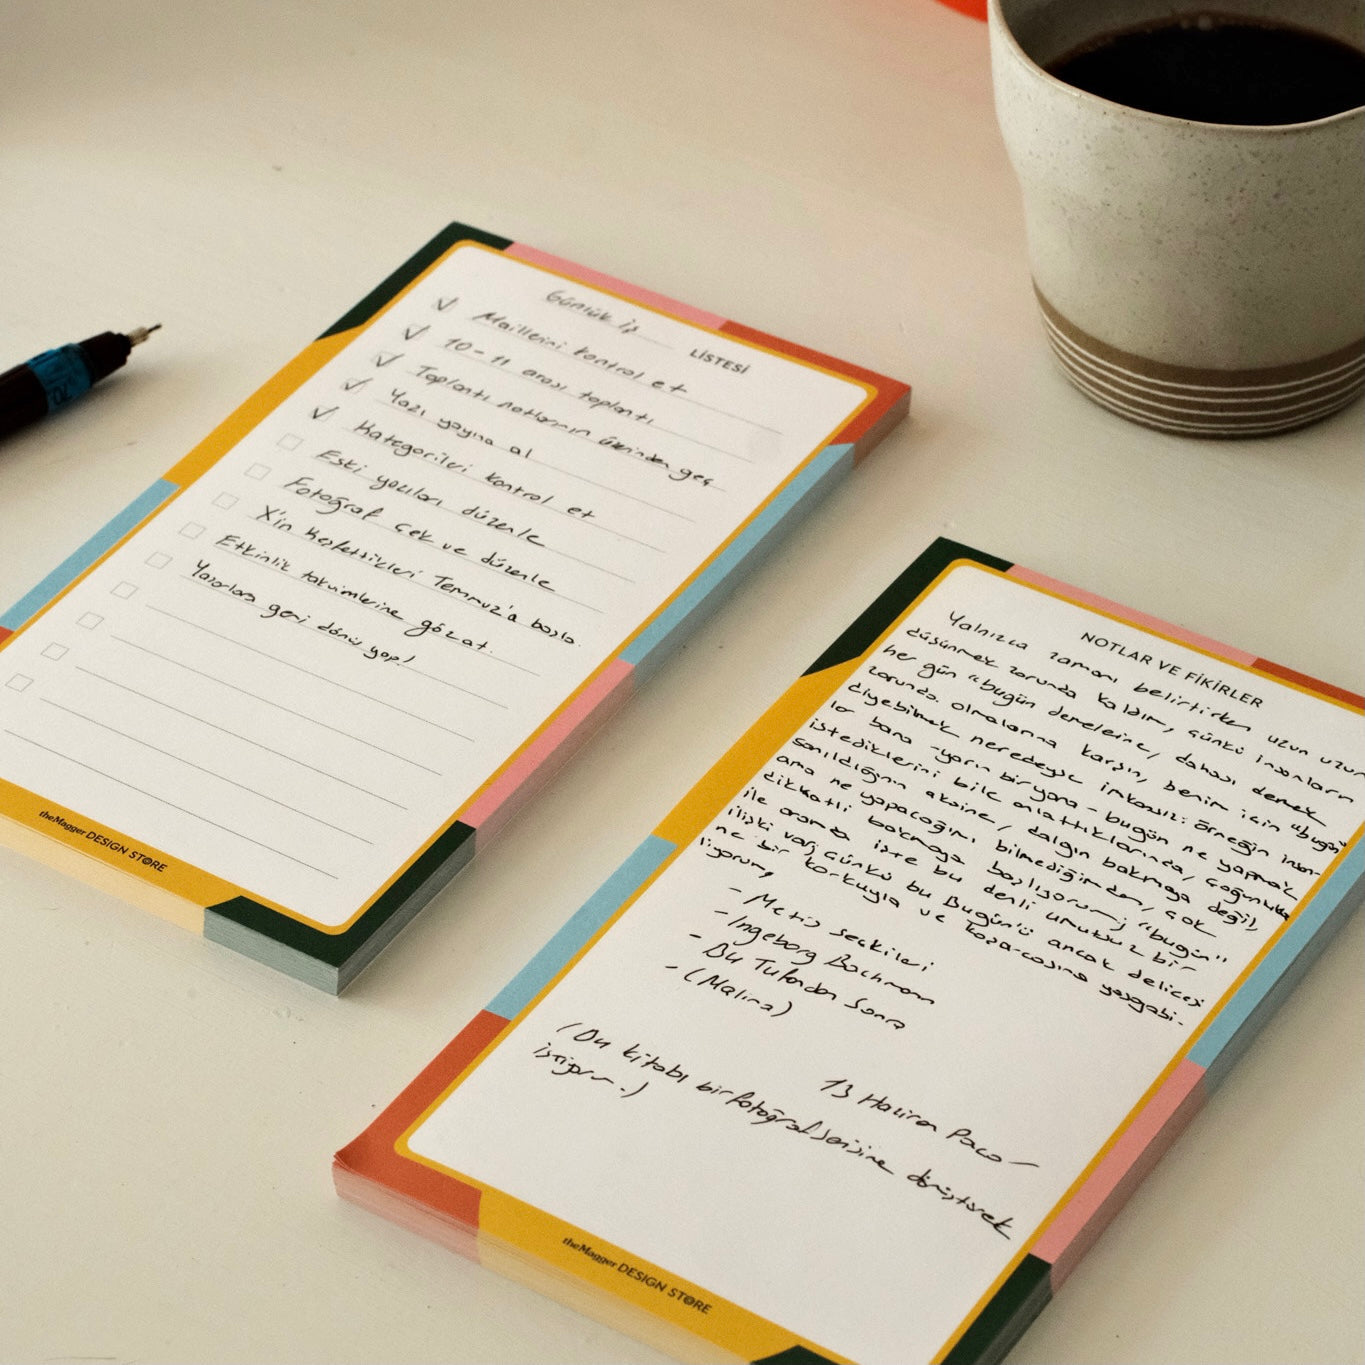 Günlük iş LİSTESİ
Maillerini kontrol et
10-11 arası toplantı
Toplantı notlarının üzerinden geç
Yazı yayına al
Kategorileri kontrol et
Eski yazıları düzenle
Fotoğraf çek ve düzenle
X'in Keşfettikleri Temmuz'a başla.
Etkinlik takvimlerine göz at.
Yazarlara geri dönüş yap!
theMagger DESIGN STORE
NOTLAR VE FİKİRLER
Yalnızca zamanı belirtirken uzun uzun
düşünmek zorunda kaldım, çünkü insanların
her gün "bugün demelerine, dahası demek
zorunda olmalarına karşın, benim için "bugün"
diyebilmek neredeyse imkansız: örneğin insan-
lar bana -yarın bir yana- bugün ne yapmak
istediklerini bile anlattıklarında, çoğunlukla
sanıldığının aksine, dalgın bakmaya değil,
ama ne yapacağımı bilmediğimden, çok
dikkatli bakmaya başlıyorum; "bugün"
ile aramda işte bu denli umutsuz bir
ilişki var; çünkü bu Bugün'ü ancak delicesi
ne bir korkuyla ve koşarcasına yaşayabi-
liyorum,
- Metis seçkileri
- Ingeborg Bachmann
- Bu Tufandan Sonra
- (Malina)
13 Haziran Paza
(Bu kitabı bir fotoğraf serisine dönüştürmek
istiyorum.)
theMagger DESIGN STORE